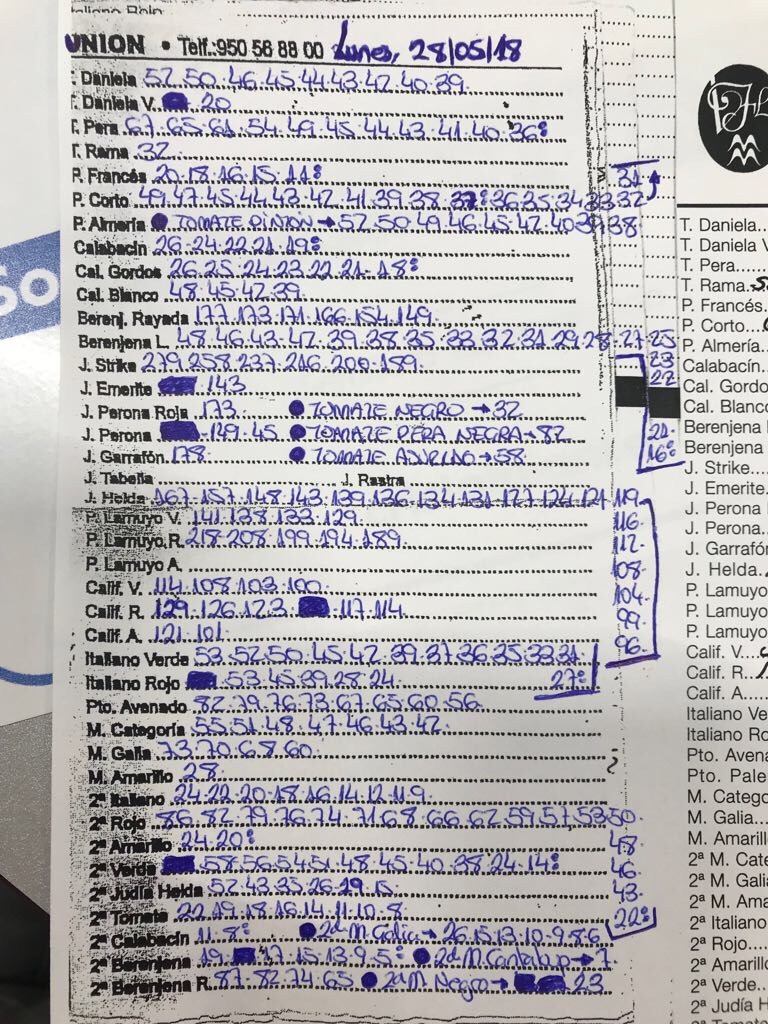 Italiano Rojo
UNION • Telf.:950 58 88 00 Lunes, 28/05/18
T. Daniela 57.50.46.45.44.43.42.40.39.
T. Daniela V. 20
T. Pera 67.65.61.54.49.45.44.43.41.40.36:
T. Rama 32
P. Francés 20.18.16.15.11:
31
P. Corto 49.47.45.44.43.42.41.39.38.37:36.35.34.33.32
P. Almería TOMATE PINTON→57.50.49.46.45.42.40.39.38
Calabacín 26.24.22.21.19:
Cal. Gordos 26.25.24.23.22.21.18:
Cal. Blanco 48.45.42.39
Berenj. Rayada 177.173.171.166.154.149
Berenjena L. 48.46.43.42.39.38.35.33.32.31.29.28.27.25
23
J. Strike 279.258.237.216.200.189.
22
J. Emerite 143
J. Perona Roja 173 TOMATE NEGRO→32
21
J. Perona 149.45 TOMATE PERA NEGRA→82
16:
J. Garrafón 178 TOMATE ASURCADO→58
J. Tabella J. Rastra
J. Helda 167.157.148.143.139.136.134.131.127.124.121.119
P. Lamuyo V. 141.138.133.129
116
P. Lamuyo R. 218.208.199.194.189
112
P. Lamuyo A.
108
Calif. V. 114.108.103.100
104
Calif. R. 129.126.123 117.114
99
Calif. A. 121.101
96
Italiano Verde 53.52.50.45.42.39.37.36.35.33.31
27:
Italiano Rojo 53.45.39.28.24
Pto. Avenado 82.79.76.73.67.65.60.56
M. Categoría 55.51.48.47.46.43.42
M. Galia 73.70.68.60
M. Amarillo 28
2ª Italiano 24.22.20.18.16.14.12.11.9
2ª Rojo 86.82.79.76.74.71.68.66.62.59.57.53.50
2ª Amarillo 24.20:
48
2ª Verde 58.56.54.51.48.45.40.38.24.14:
46
2ª Judía Helda 52.43.35.26.19.15
43
2ª Tomate 22.19.18.16.14.11.10.8
22:
2ª Calabacín 11.8: 2ª M. Galia→26.15.13.10.9.8.6
2ª Berenjena 19 17.15.13.9.5: 2ª M. Cantalup→7
2ª Berenjena R. 87.82.74.65 2ª M Negro→ 23
T. Daniela
T. Daniela V
T. Pera
T. Rama
P. Francés
P. Corto
P. Almería
Calabacín
Cal. Gordo
Cal. Blanco
Berenjena
Berenjena
J. Strike
J. Emerite
J. Perona
J. Perona
J. Garrafón
J. Helda
P. Lamuyo
P. Lamuyo
P. Lamuyo
Calif. V.
Calif. R.
Calif. A.
Italiano Ve
Italiano Ro
Pto. Avena
Pto. Pale
M. Catego
M. Galia
M. Amarill
2ª M. Cate
2ª M. Gali
2ª M. Ama
2ª Italiano
2ª Rojo
2ª Amarill
2ª Verde
2ª Judía H
So